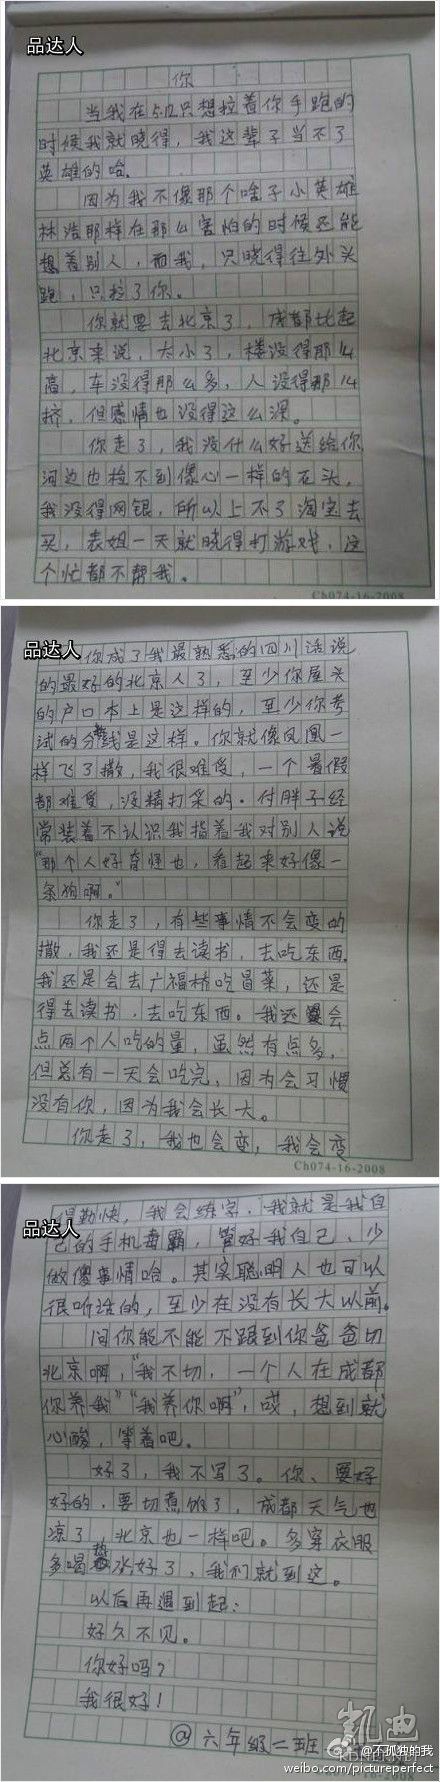 品达人
你
当我在5.12只想拉着你手跑的
时候我就晓得，我这辈子当不了
英雄的哈。
因为我不像那个啥子小英雄
林浩那样在那么害怕的时候还能
想着别人，而我，只晓得往外头
跑，只拉了你。
你就要去北京了，成都比起
北京来说，太小了，楼没得那么
高，车没得那么多，人没得那么
挤，但感情也没得这么深。
你走了，我没什么好送给你
河边也检不到像心一样的石头，
我没得网银，所以上不了淘宝去
买，表姐一天就晓得打游戏，这
个忙都不帮我。
Ch074-16-2008
品达人
你成了我最熟悉的四川话说
的最好的北京人了，至少你屋头
的户口本上是这样的，至少你考
试的分数线是这样。你就像凤凰一
样飞了撒，我很难受，一个暑假
都难受，没精打采的。付胖子经
常装着不认识我指着我对别人说
“那个人好奇怪也，看起来好像一
条狗啊。”
你走了，有些事情不会变的
撒，我还是得去读书，去吃东西。
我还是会去广福桥吃冒菜，还是
得去读书，去吃东西。我还会
点两个人吃的量，虽然有点多，
但总有一天会吃完，因为会习惯
没有你，因为我会长大。
你走了，我也会变，我会变
Ch074-16-2008
品达人
得勤快，我会练字，我就是我自
己的手机毒霸，管好我自己、少
做傻事情哈。其实聪明人也可以
很听话的，至少在没有长大以前。
问你能不能不跟到你爸爸切
北京啊，“我不切，一个人在成都
你养我”“我养你啊”，哎，想到就
心酸，等着吧。
好了，我不写了。你、要好
好的，要切煮饭了，成都天气也
凉了，北京也一样吧。多穿衣服
多喝热水好了，我们就到这。
以后再遇到起：
好久不见。
你好吗？
我很好！
@六年级二班
凯迪
@不孤独的我
weibo.com/pictureperfect